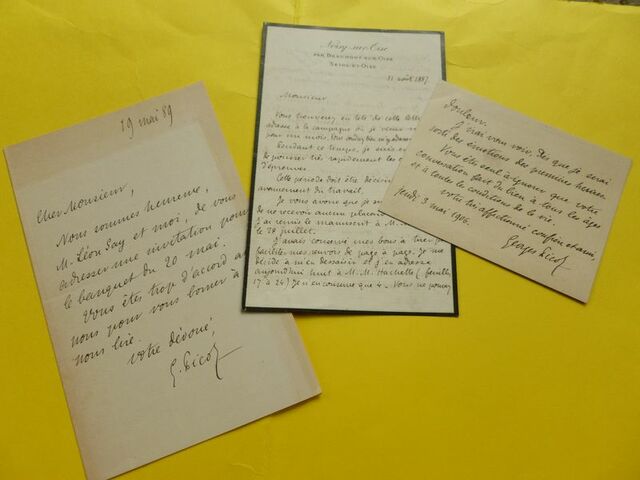 19 mai 89
Cher Monsieur,
Nous sommes heureux,
M. Léon Say et moi, de vous
adresser une invitation pour
le banquet du 20 mai.
Vous êtes trop d'accord avec
nous pour vous borner à
nous lire.
Votre dévoué,
G. Picot
Noisy-sur-Oise
PAR BEAUMONT-SUR-OISE
SEINE-ET-OISE
11 août 1887
Monsieur
Vous trouverez en tête de cette
adresse à la campagne où je viens
pour un mois.
Pendant ce temps, je suis
de pouvoir très rapidement
d'épreuves.
Cette période doit être
avancement du travail.
Je vous avoue que je
de ne recevoir aucun
J'ai remis le manuscrit à M.
le 28 juillet.
J'avais conservé mes bons à tirer
faciliter mes renvois de page à page. Je me
décide à m'en dessaisir et j'en adresse
aujourd'hui huit à M.M. Hachette (feuilles
17 à 24) Je n'en conserve que 4. Vous ne pouvez
douleur.
J'irai vous voir, dès que je serai
sorti des émotions des premières heures
Vous êtes seul à ignorer que votre
conversation fait du bien à tous les âges
et à toutes les conditions de la vie.
Votre bien affectionné confrère et ami,
Jeudi, 3 mai 1906.
Georges Picot